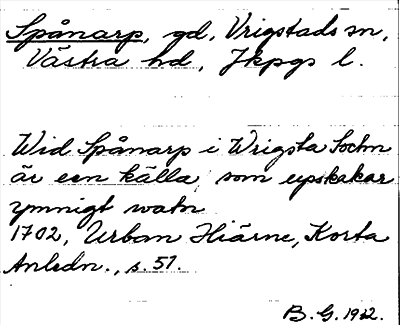 Spånarp, gd, Vrigstads sn,
Västra hd, Jkpgs l.
Wid Spånarp i Wrigsta Sochn
är een källa, som upskakar
ymnigt watn
1702, Urban Hiärne, Korta
Anledn., s. 57.
B. G. 1922.